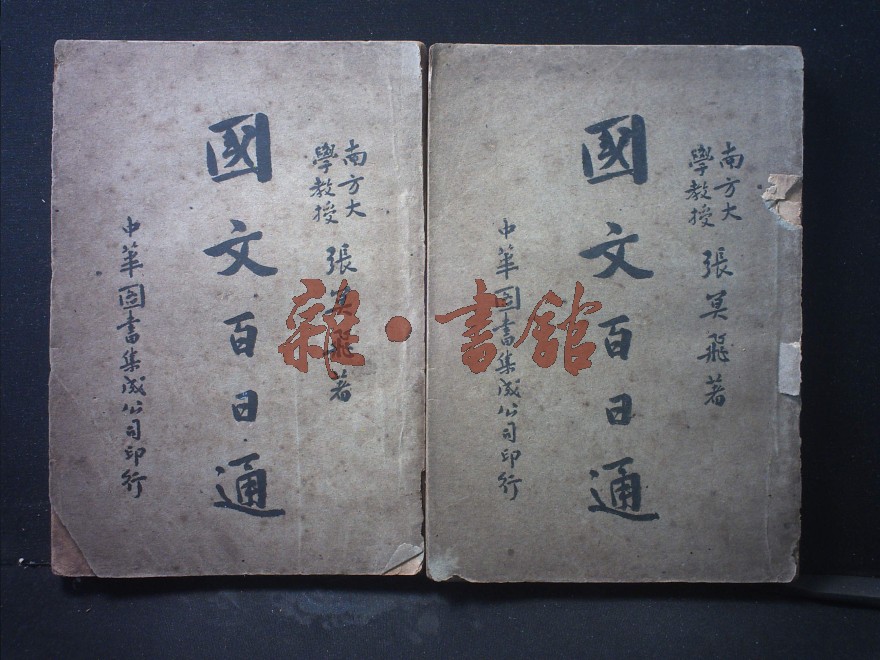 南方大
學教授
張冥飛著
國文百日通
中華圖書集成公司印行
南方大
學教授
張冥飛著
國文百日通
中華圖書集成公司印行
雜·書館